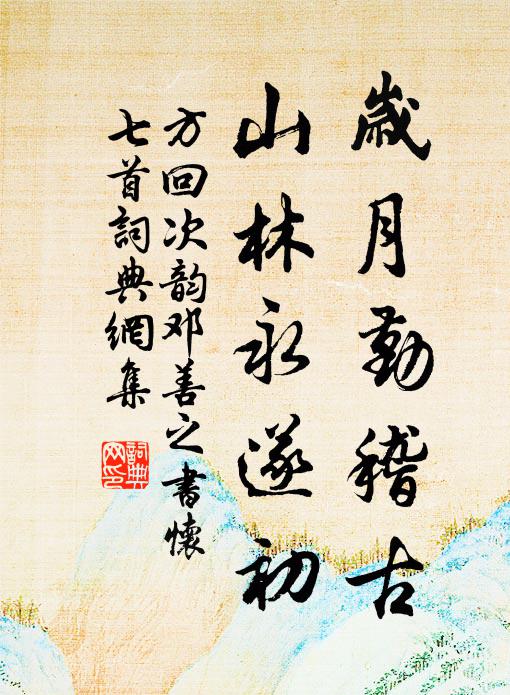 歲月勤稽古
山林永遂初
方回次韵邓善之書懷
七首詞典網集
詞典
网印